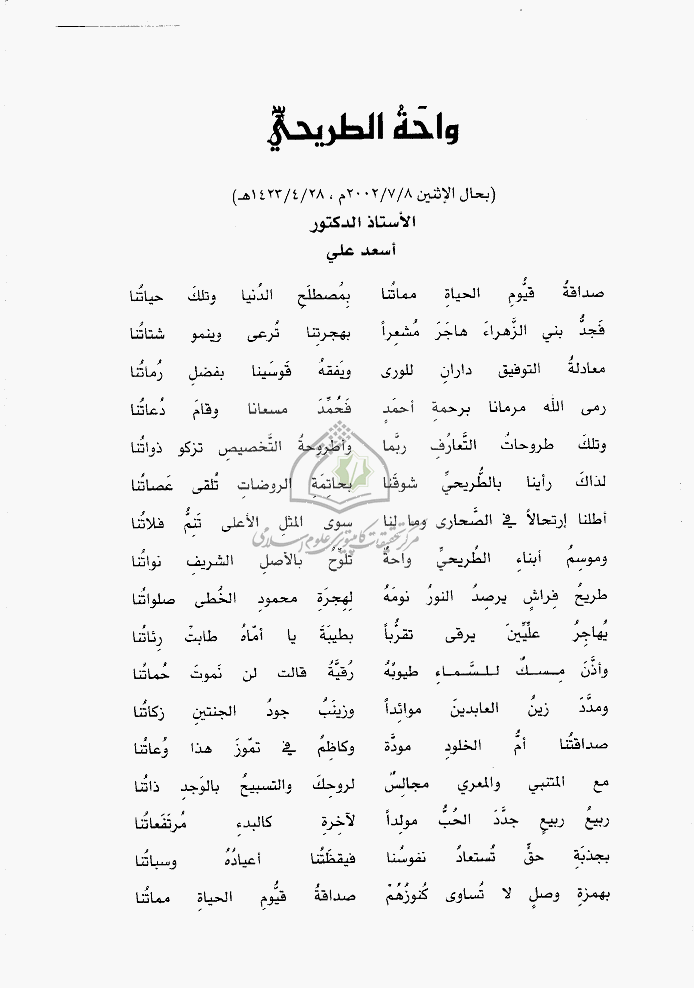 واحَةُ الطريحيِّ
(بحال الإثنين ٢٠٠٢/٧/٨م ، ١٤٢٣/٤/٢٨هـ)
الأستاذ الدكتور
أسعد علي
صداقةُ قيُّومِ الحياةِ مماتُنا بِمُصطلَحِ الدُنيا وتلكَ حياتُنا
فَجدُّ بني الزَّهراءَ هاجَرَ مُشعِراً بهجرتِنا تُرعى وينمو شتاتُنا
معادلةُ التوفيق دارانِ للورى ويَفقهُ قَوسَينا بفضلِ رُماتُنا
رمى الله مرمانا برحمةِ أحمَدٍ فَحُمِّدَ مسعانا وقامَ دُعاتُنا
وتلكَ طروحاتُ التَّعارُفِ ربَّما وأطروحةُ التَّخصيصِ تزكو ذواتُنا
لذاكَ رأينا بالطُّريحيِّ شوقَنا بخاتِمَةِ الروضاتِ تُلقى عَصاتُنا
أطلنا إرتحالاً في الصَّحارى وما لنا سِوى المثلِ الأعلى تَنِمُّ فلاتُنا
وموسِمُ أبناءِ الطُريحيِّ واحةٌ تلوِّحُ بالأصلِ الشريفِ نواتُنا
طريحُ فِراشٍ يرصِدُ النورُ نومَهُ لِهجرَةِ محمودِ الخُطى صلواتُنا
يُهاجِرُ علِّيِّينَ يرقى تقرُّباً بطيبَةَ يا أمّاهُ طابتْ رِئاتُنا
وأذَّنَ مِسكٌ للسَّماءِ طيوبُهُ رُقيَّةُ قالت لن نَموتَ حُماتُنا
ومدَّدَ زينُ العابدينَ موائِداً وزينَبُ جودُ الجنتينِ زكاتُنا
صداقتُنا أمُّ الخلودِ مودَّة وكاظِمُ في تمّوزَ هذا وُعاتُنا
مع المتنبي والمعري مجالِسٌ لروحِكَ والتسبيحُ بالوَجدِ ذاتُنا
ربيعُ ربيعٍ جدَّدَ الحُبُّ مولِداً لآخِرةٍ كالبدءِ مُرتَفعاتُنا
بجذبَةِ حقٍّ تُستعادُ نفوسُنا فيقظَتُنا أعيادُهُ وسباتُنا
بهمزةِ وصلٍ لا تُساوى كُنوزُهُمْ صداقةُ قيُّومِ الحياةِ مماتُنا
مرکز تحقیقات کامپیوتری علوم اسلامی